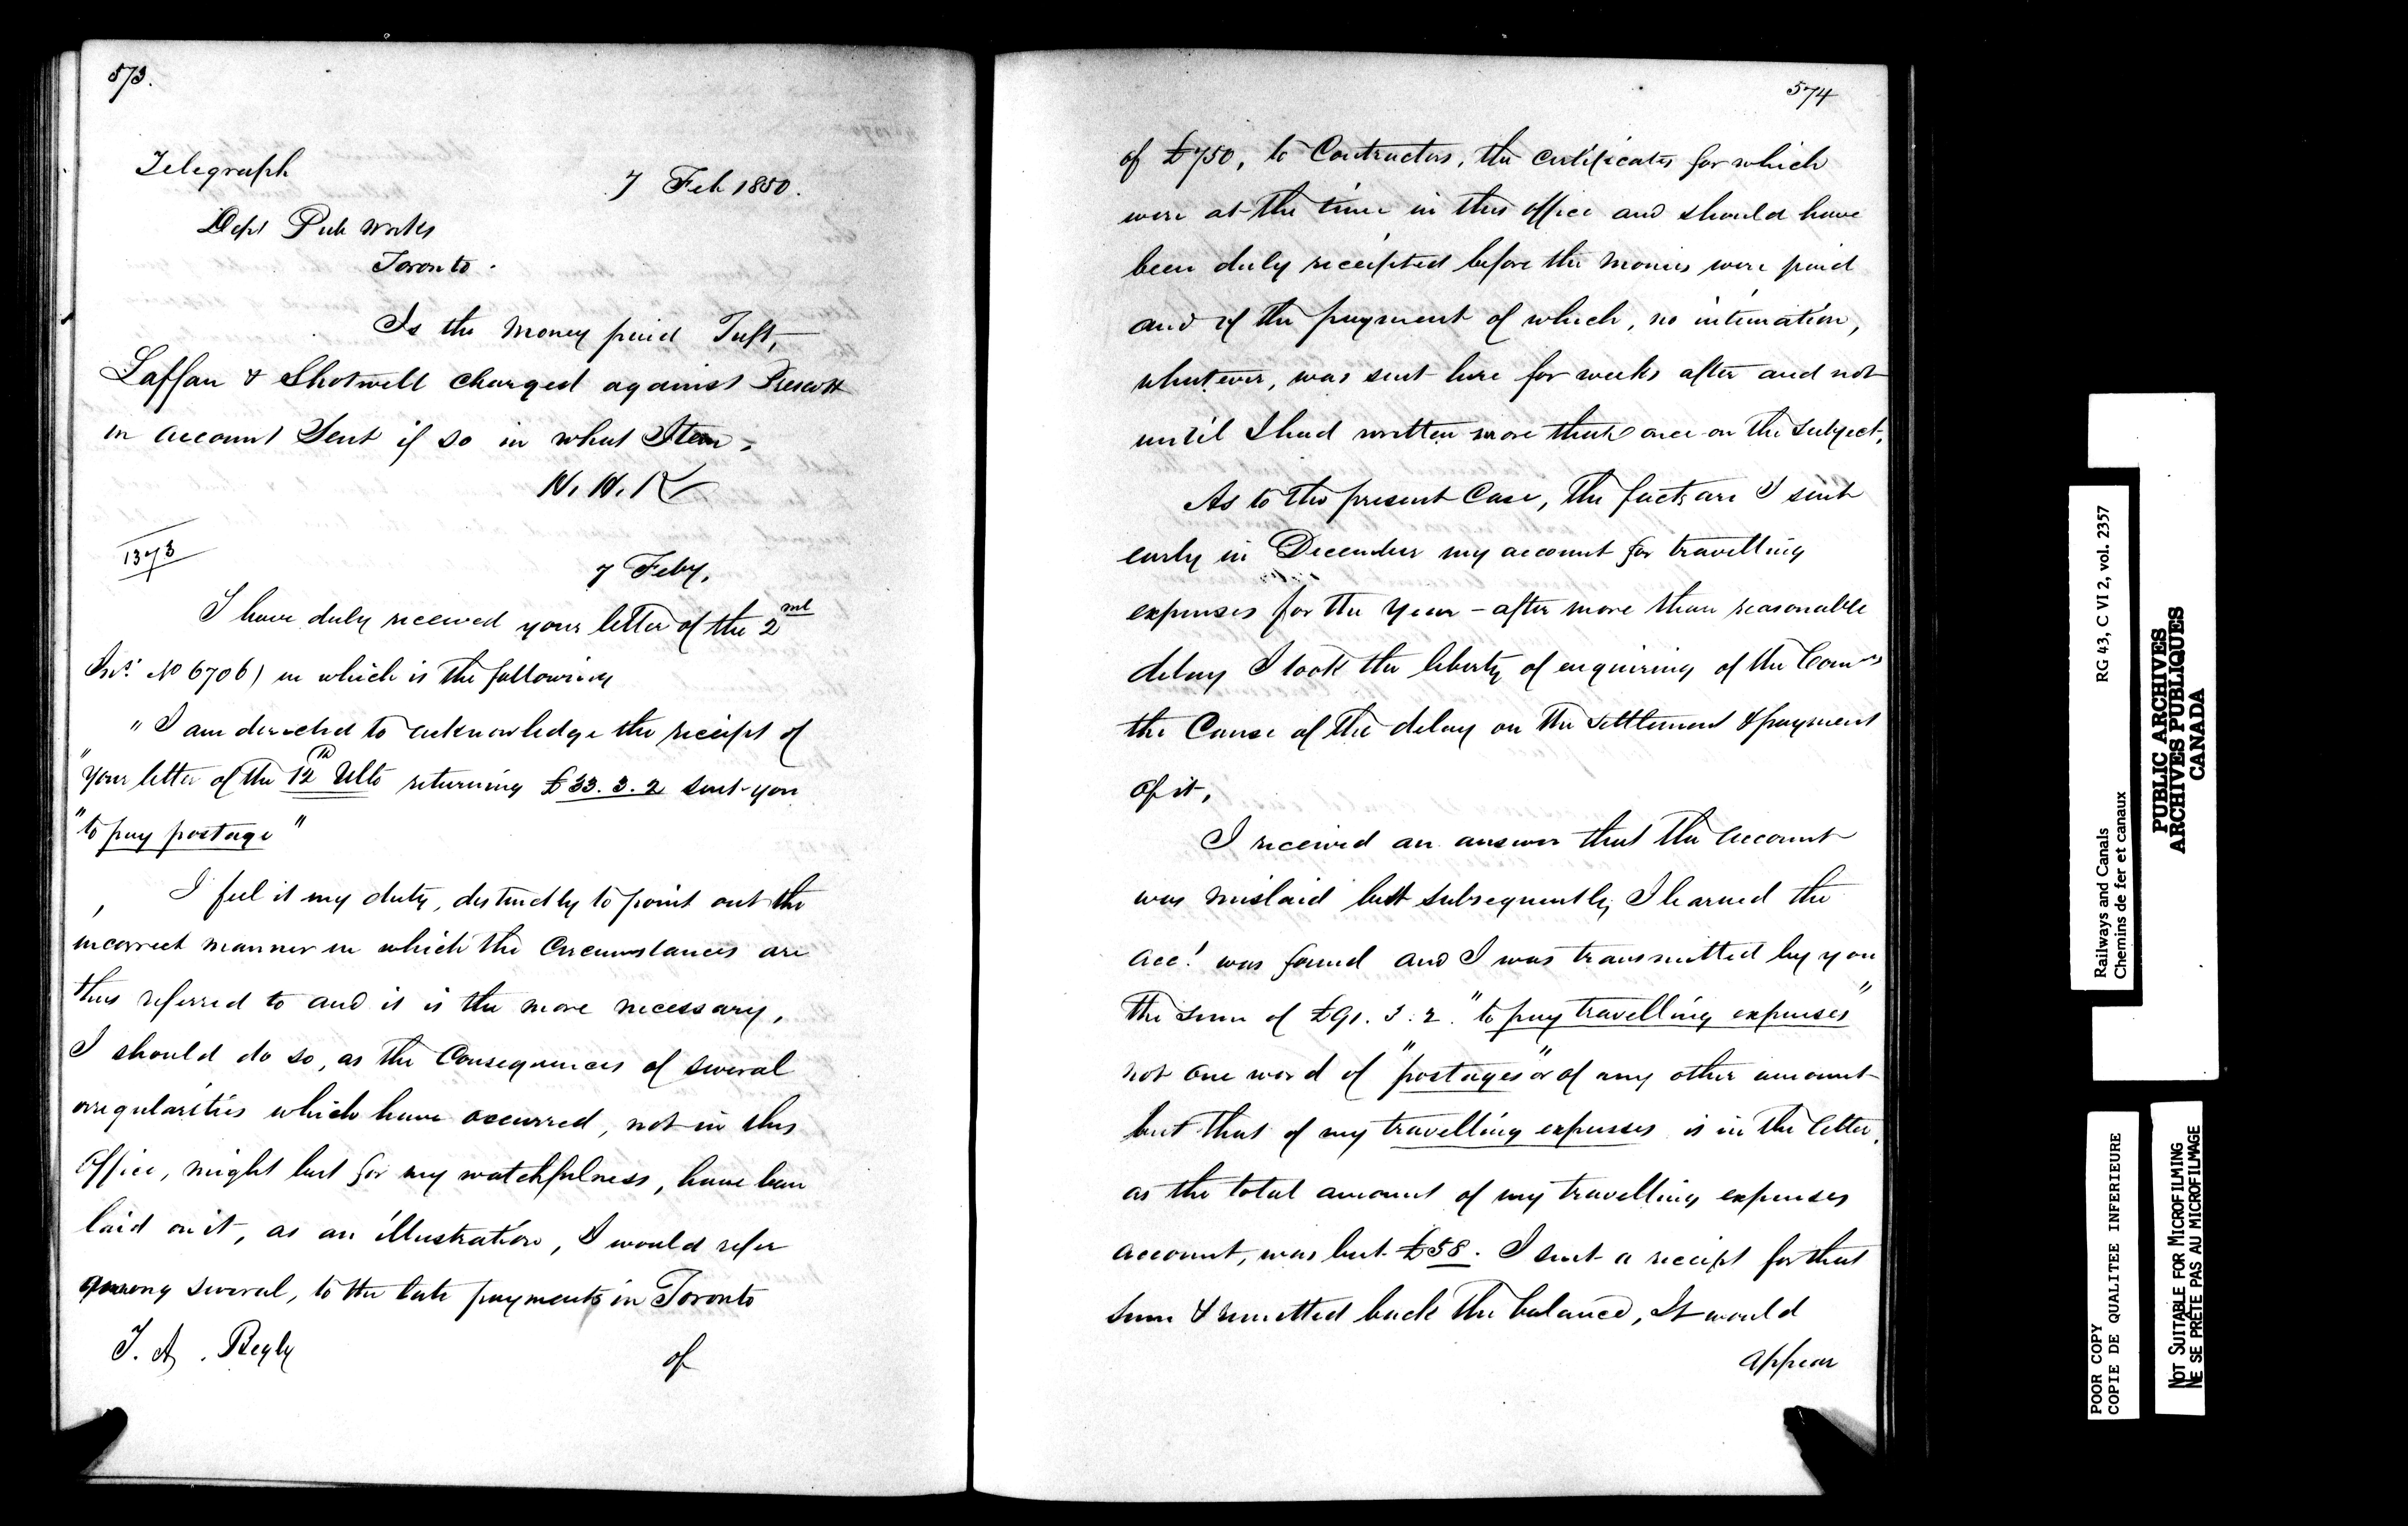 573.
Telegraph
7 Feb 1850.
Dept Pub Works
Toronto.
Is the money paid Tuft,
Laffan & Shotwell charged against Prescott
in account Sent if so in what Item,
1373
7 Feby,
I have duly received your letter of the 2nd
Inst No 6706) in which is the following
" I am directed to acknowledge the receipt of
"your letter of the 12th Ulto returning £33.3.2 sent you
"to pay postage"
I feel it my duty, distinctly to point out the
incorrect manner in which the Circumstances are
thus referred to and it is the more necessary,
I should do so, as the Consequences of several
irregularities which have occurred, not in this
Office, might but for my watchfulness, have been
laid on it, as an illustration, I would refer
among several, to the late payments in Toronto
T. A. Begly
of
574
of £750, to Contractors, the certificates for which
were at the time in this office and should have
been duly receipted before the monies were paid
and of the payment of which, no intimation,
whatever, was sent here for weeks after and not
until I had written more than once on the subject,
As to the present Case, the facts are I sent
early in December my account for travelling
expenses for the year - after more than reasonable
delay I took the liberty of enquiring of the Comrs
the Cause of the delay on the settlement & payment
of it,
I received an answer that the account
was mislaid but subsequently I learned the
acct was found and I was transmitted by you
the sum of £91.3.2. "to pay travelling expenses"
not one word of "postages" or of any other amount
but that of my travelling expenses is in the letter,
as the total amount of my travelling expenses
account, was but £58. I sent a receipt for that
sum & remitted back the balance, It would
appear
RG 43, C VI 2, vol. 2357
Railways and Canals
Chemins de fer et canaux
PUBLIC ARCHIVES
ARCHIVES PUBLIQUES
CANADA
POOR COPY
COPIE DE QUALITEE INFERIEURE
NOT SUITABLE FOR MICROFILMING
NE SE PRÊTE PAS AU MICROFILMAGE